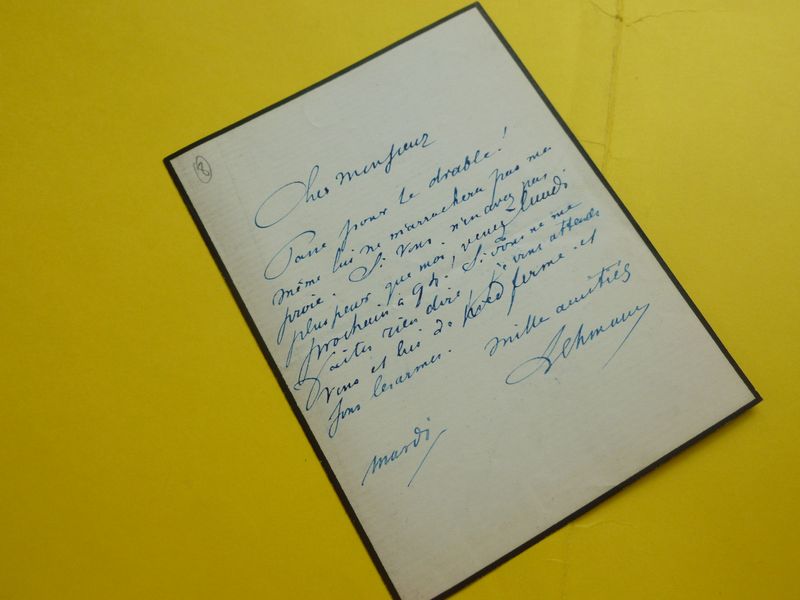 8
Cher monsieur
Passe pour le diable!
même lui ne m'arrachera pas ma
proie. Si vous n'en avez pas
plus peur que moi, venez lundi
prochain à 9h. Si vous ne me
faites rien dire, je vous attends
vous et lui de pied ferme et
sous les armes. mille amitiés
Lehmann
mardi